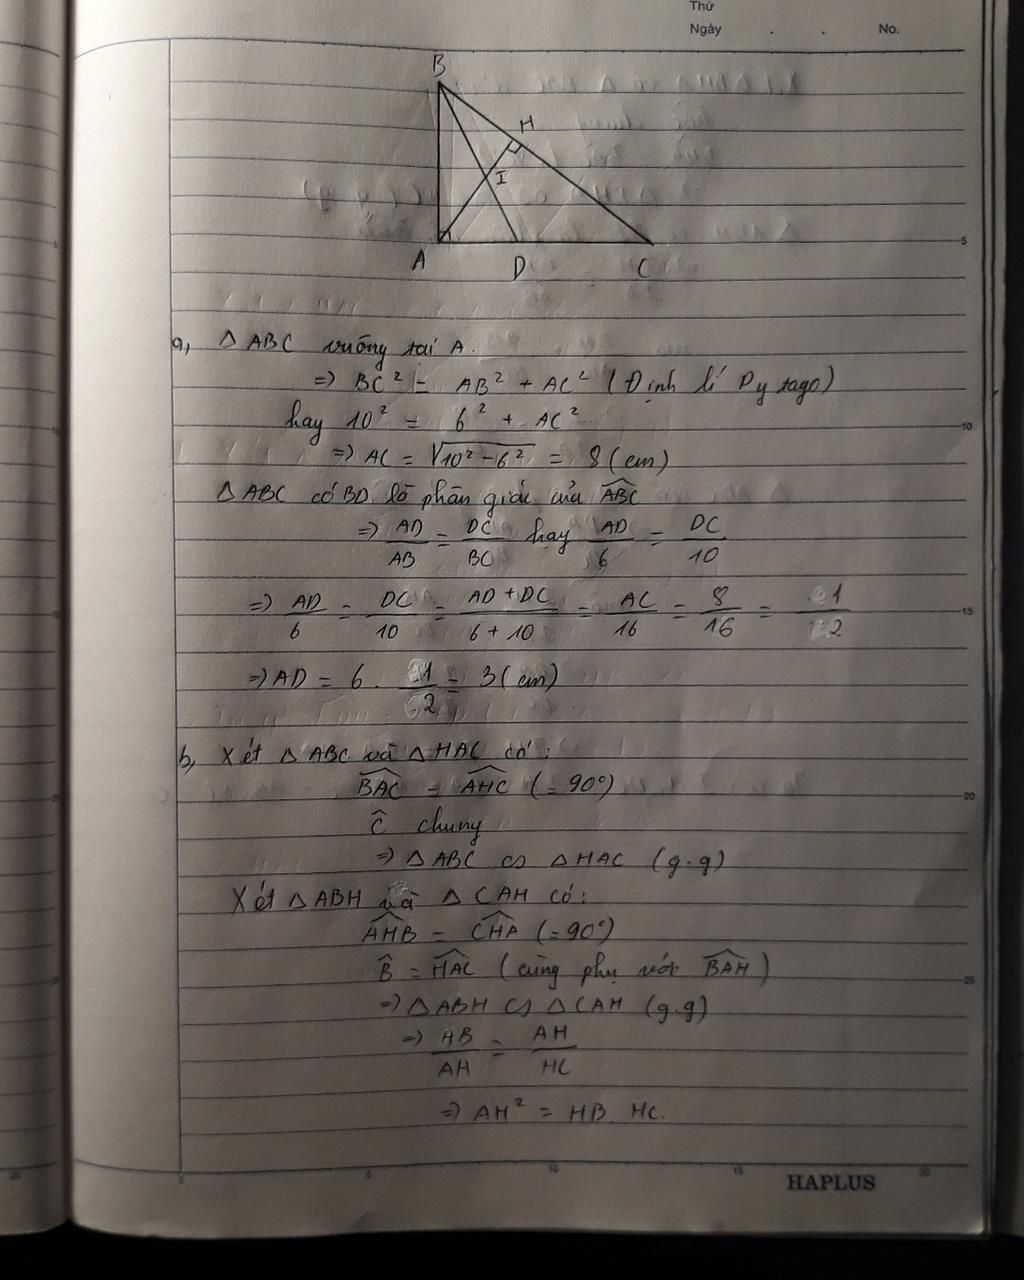 Thứ
Ngày . . No.
B
H
I
A D C
5
a, △ ABC vuông tại A.
=> BC² = AB² + AC² (Định lí Py tago)
hay 10² = 6² + AC²
10
=> AC = √10² - 6² = 8 (cm)
△ ABC có BD là phân giác của ABC
=> AD/AB = DC/BC hay AD/6 = DC/10
=> AD/6 = DC/10 = AD + DC/6 + 10 = AC/16 = 8/16 = 1/2
15
=> AD = 6 . 1/2 = 3 (cm)
b, Xét △ ABC và △ HAC có:
BAC = AHC (= 90°)
20
Ĉ chung
=> △ ABC ∽ △ HAC (g.g)
Xét △ ABH và △ CAH có:
AHB = CHA (= 90°)
B̂ = HAC (cùng phụ với BAH)
25
=> △ ABH ∽ △ CAH (g.g)
=> HB/AH = AH/HC
=> AH² = HB HC.
0 5 10 15 20
HAPLUS
20